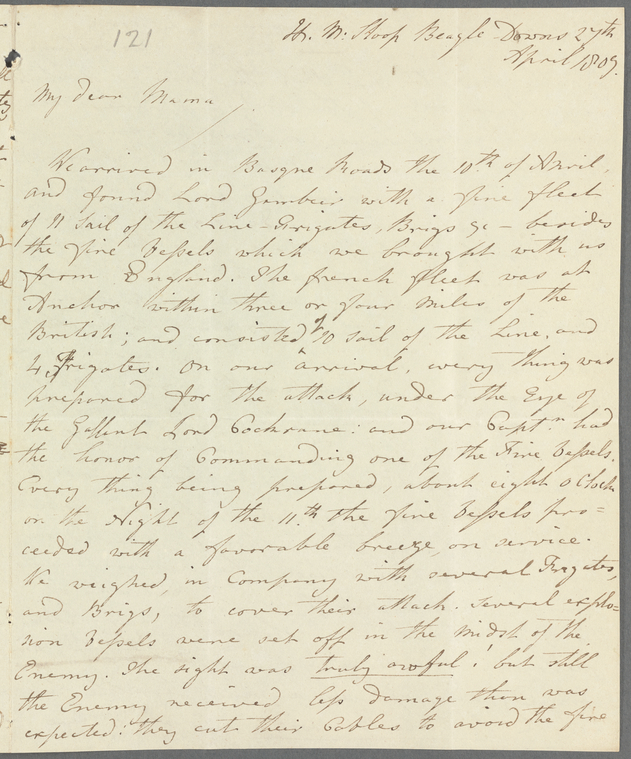 121
H. M. Sloop Beagle Downs 27th
April 1809.
My dear Mama
We arrived in Basque Roads the 10th of April,
and found Lord Gambier with a fine fleet
of 11 sail of the Line - Frigates, Brigs &c - besides
the fire Vessels which we brought with us
from England. The french fleet was at
Anchor within three or four miles of the
British; and consisted of 10 sail of the Line, and
4, Frigates. On our arrival, every thing was
prepared for the attack, under the Eye of
the Gallent Lord Cochrane: and our Captn had
the honor of Commanding one of the Fire Vessels.
Every thing being prepared, about eight o Clock
on the Night of the 11th the fire Vessels pro=
ceeded with a favorable breeze, on service.
We weighed, in Company with several Frigates,
and Brigs, to cover their attack. Several explo=
sion Vessels were set off in the midst of the
Enemy. The sight was truly awful! but still
the Enemy received less damage then was
expected: they cut their Cables to avoid the fire